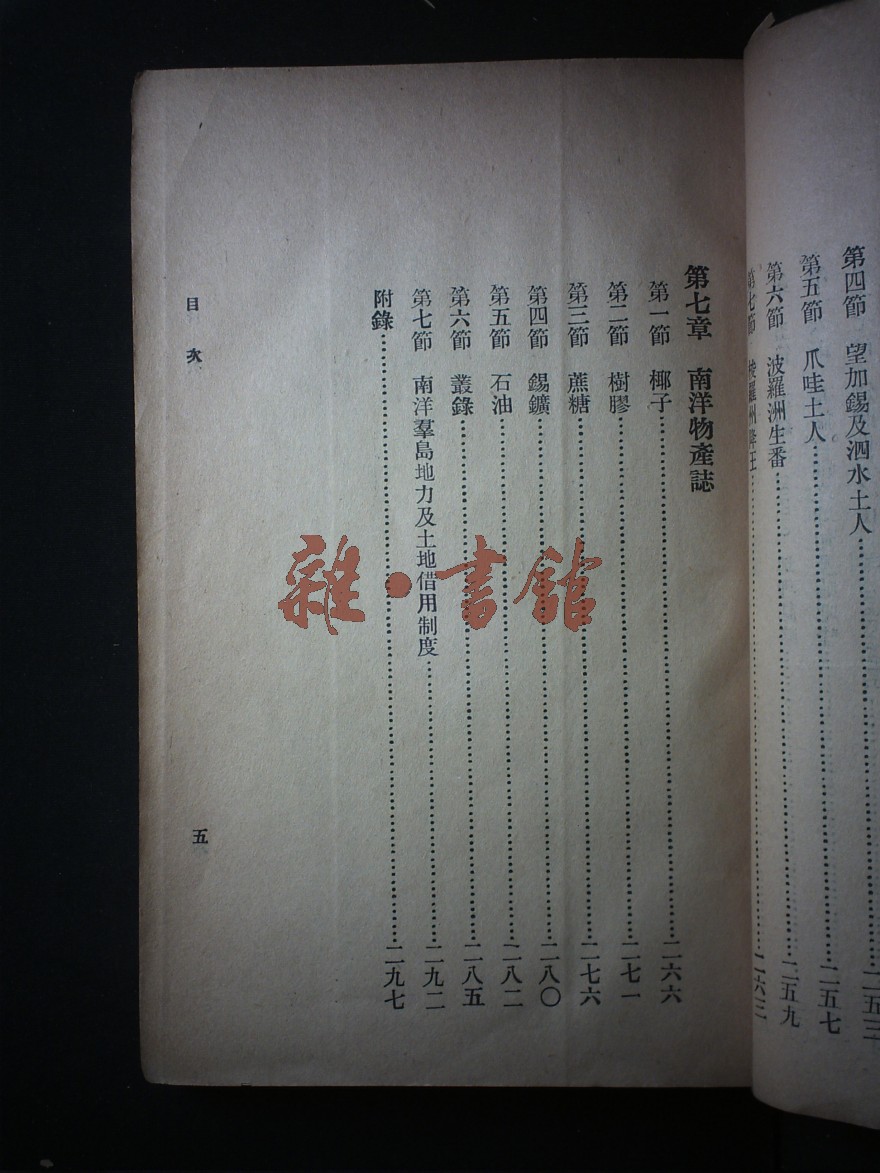 第四節 望加錫及泗水土人……二五三
第五節 爪哇土人……二五七
第六節 波羅洲生番……二五九
第七節 羅州
二六三
第七章 南洋物產誌
第一節 椰子……二六六
第二節 樹膠……二七一
第三節 蔗糖……二七六
第四節 錫鑛……二八〇
第五節 石油……二八二
第六節 叢錄……二八五
第七節 南洋羣島地力及土地借用制度……二九二
附錄……二九七
目次
五
雜·書館